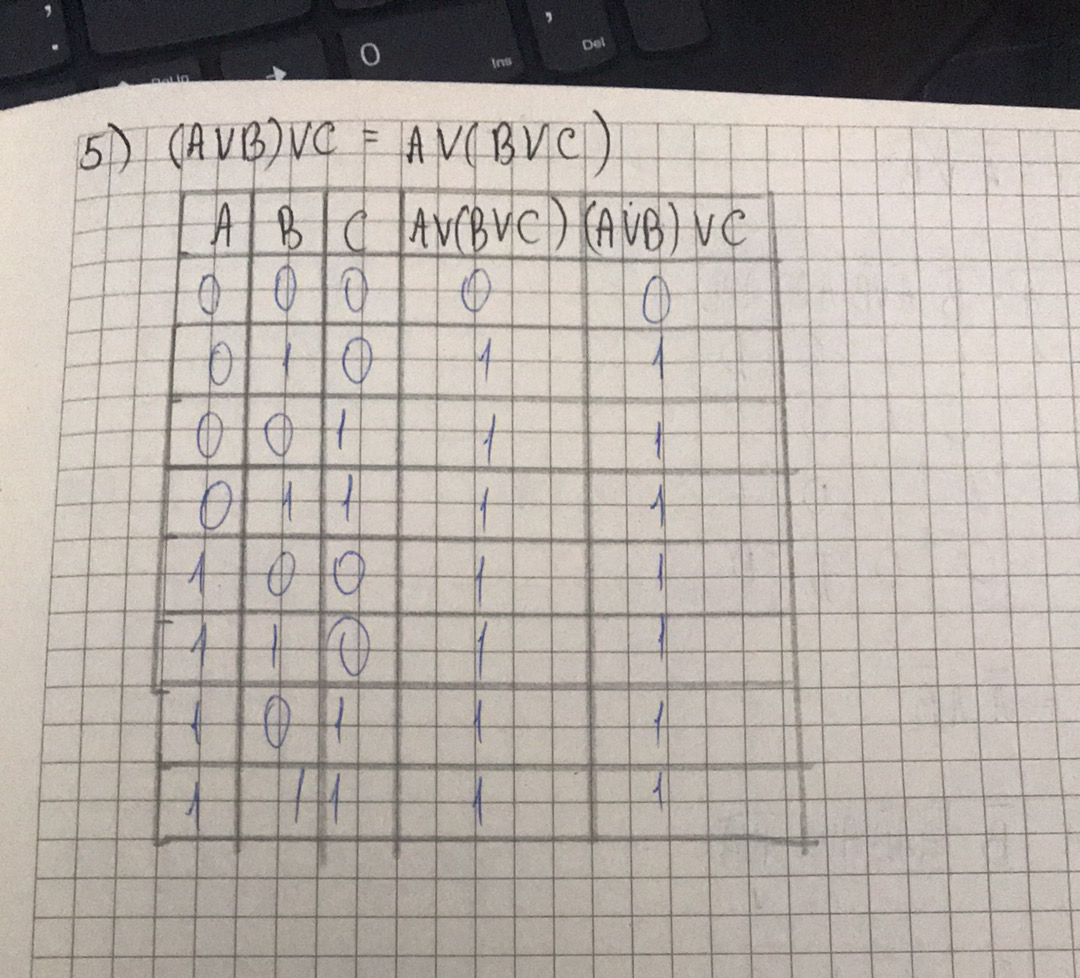 , ,
.
0 Ins Del
→
5) (AVB)VC = AV(BVC)
A B C AV(BVC) (AVB) VC
0 0 0 0 0
0 1 0 1 1
0 0 1 1 1
0 1 1 1 1
1 0 0 1 1
1 1 0 1 1
1 0 1 1 1
1 1 1 1 1